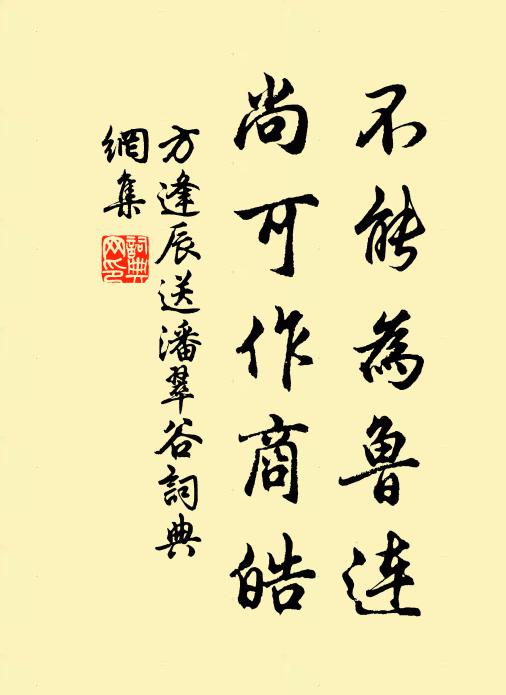 不能為魯連
尚可作商皓
方逢辰送潘翠谷詞典
網集
詞典網印